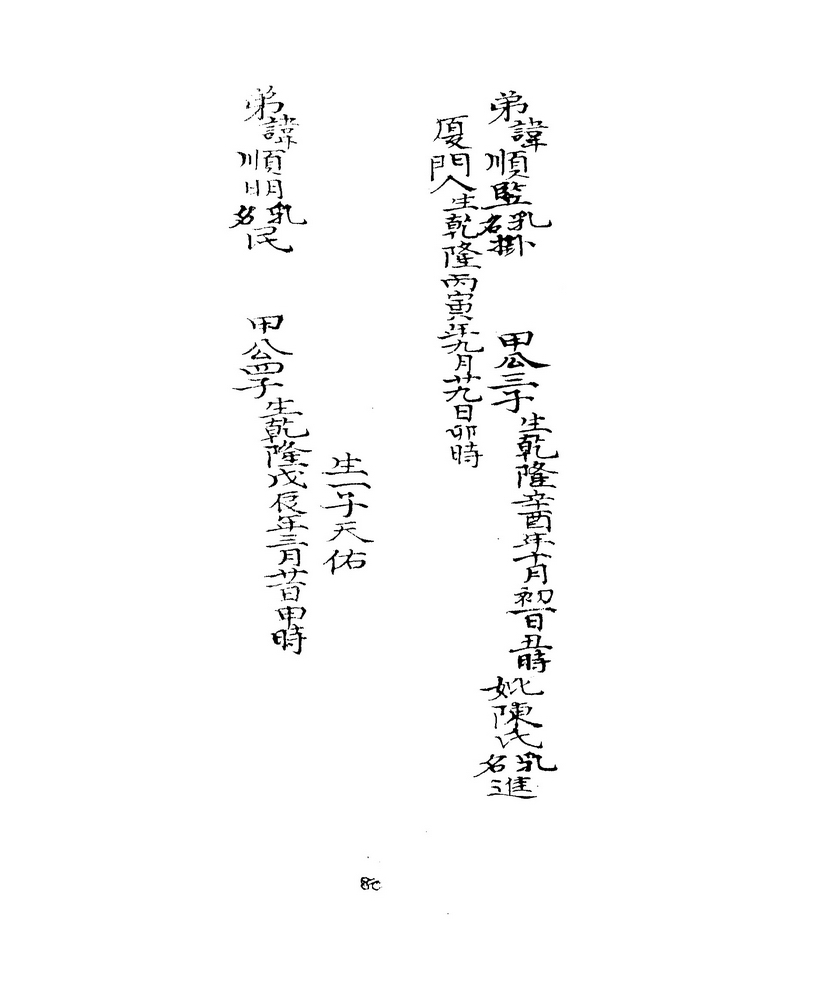 弟諱順監乳名掛 甲公三子生乾隆辛酉年十月初一日丑時妣陳氏乳名進
厦門人生乾隆丙寅年九月廿九日卯時
生一子天佑
弟諱順明乳名民 甲公四子生乾隆戊辰年三月廿日申時